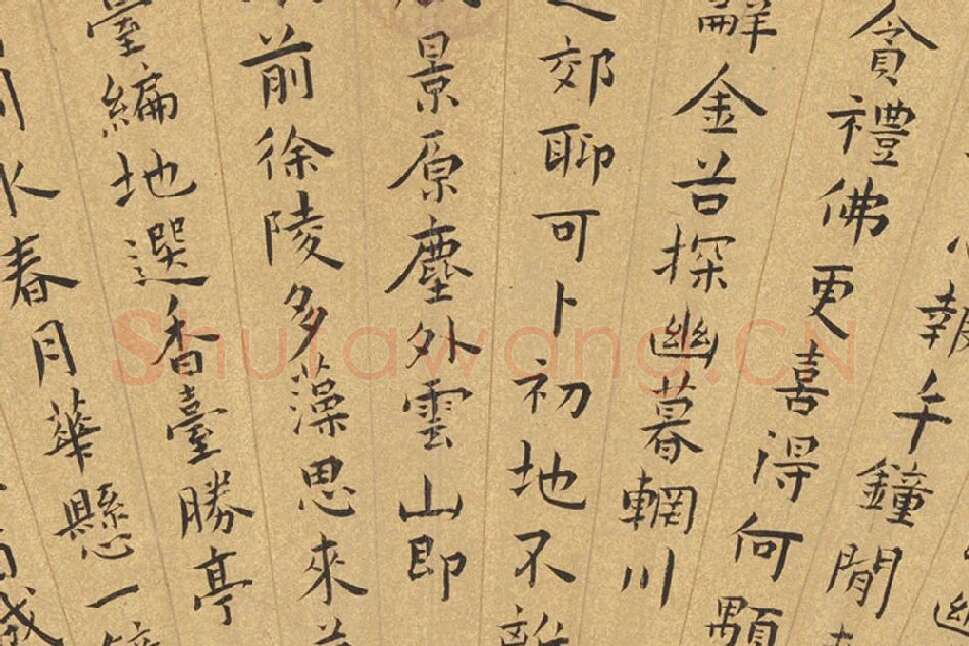 報千鐘閒
貪禮佛更喜得何顒
金昔探幽暮輞川
郊聊可卜初地不
景原塵外雲山即
前徐陵多藻思來
臺編地選香臺勝亭
水春月華懸一
Shufawang.CN